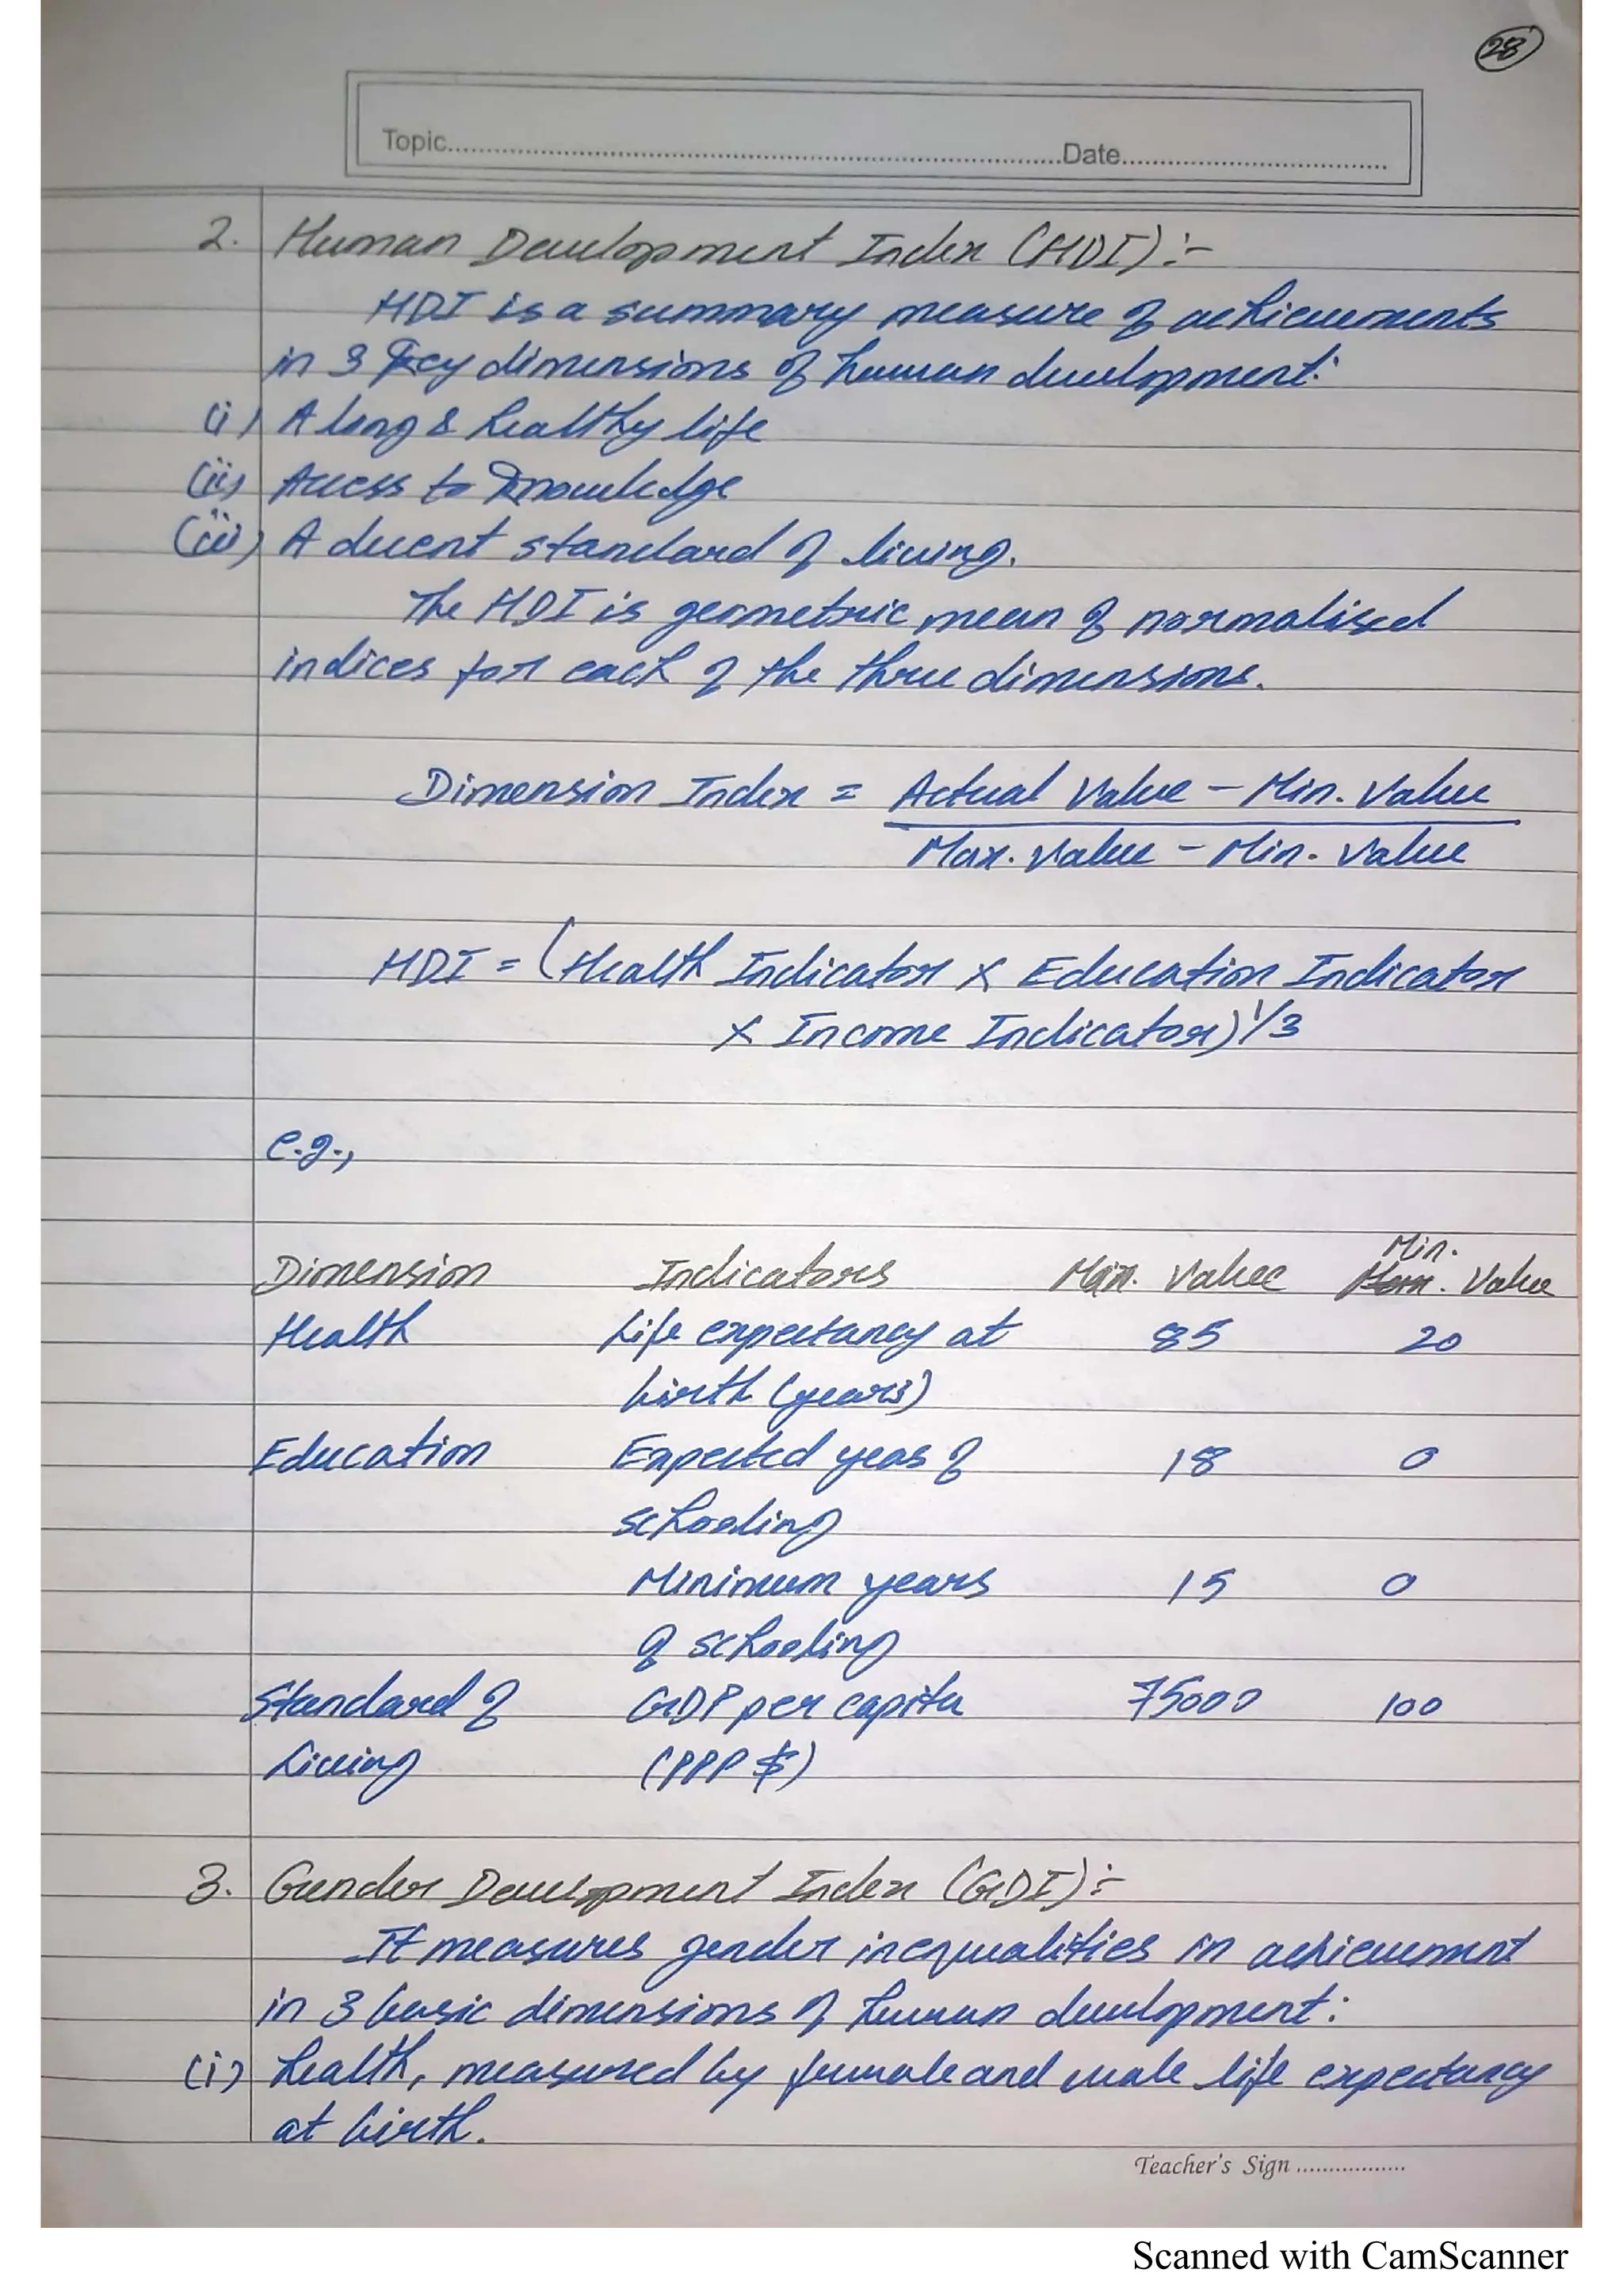 28
Topic..........Date..........
2. Human Development Index (HDI):-
HDI is a summary measure of achievements
in 3 key dimensions of human development:
(i) A long & healthy life
(ii) Access to knowledge
(iii) A decent standard of living.
The HDI is geometric mean of normalised
indices for each of the three dimensions.
Dimension Index = Actual Value - Min. Value
Max. Value - Min. Value
HDI = (Health Indicator × Education Indicator
× Income Indicator)^1/3
e.g.,
Dimension Indicators Max. Value Min. Value
Health Life expectancy at 85 20
birth (years)
Education Expected yeas of 18 0
schooling
Minimum years 15 0
of schooling
Standard of GDP per capita 75000 100
Living (PPP $)
3. Gender Development Index (GDI):-
It measures gender inequalities in achievement
in 3 basic dimensions of human development:
(i) health, measured by female and male life expectancy
at birth.
Teacher's Sign ..........
Scanned with CamScanner